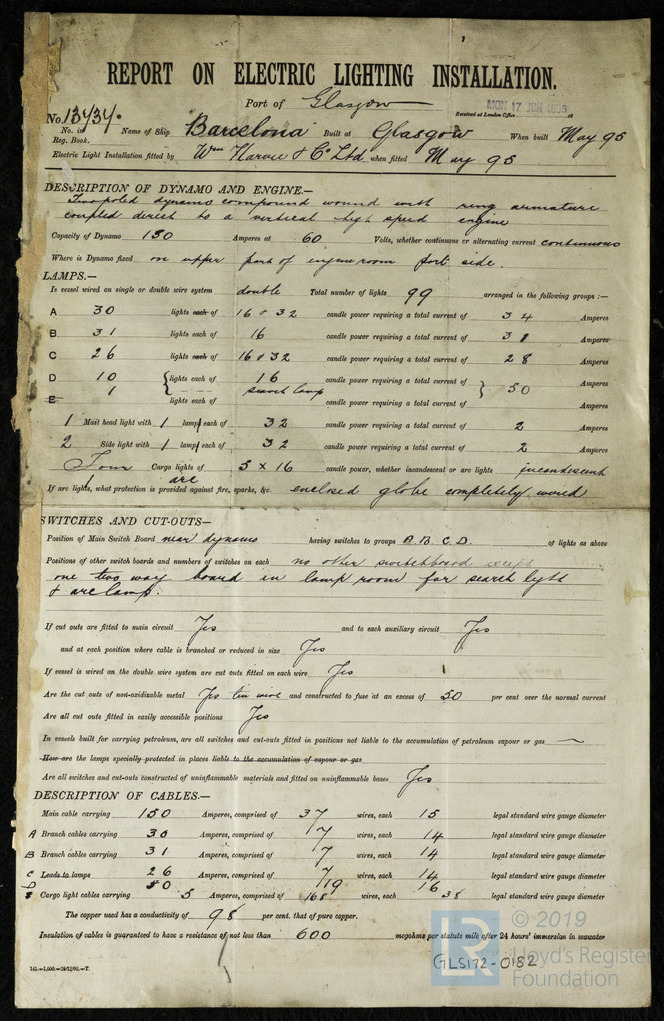 REPORT ON ELECTRIC LIGHTING INSTALLATION.
Port of Glasgow
MON 17 JUN 1895
No. 13434. Received at London Office 18
No. in Reg. Book. Name of Ship Barcelona Built at Glasgow When built May 95
Electric Light Installation fitted by Wm Harvie & Co Ltd when fitted May 95
DESCRIPTION OF DYNAMO AND ENGINE.—
Two poled dynamo compound wound with ring armature
coupled direct to a vertical high speed engine
Capacity of Dynamo 150 Amperes at 60 Volts, whether continuous or alternating current continuous
Where is Dynamo fixed on upper part of engine room port side.
LAMPS.—
Is vessel wired on single or double wire system double Total number of lights 99 arranged in the following groups :—
A 30 lights each of 16 & 32 candle power requiring a total current of 34 Amperes
B 31 lights each of 16 candle power requiring a total current of 31 Amperes
C 26 lights each of 16 & 32 candle power requiring a total current of 28 Amperes
D 10 lights each of 16 candle power requiring a total current of 50 Amperes
E 1 lights each of search lamp candle power requiring a total current of Amperes
1 Mast head light with 1 lamp each of 32 candle power requiring a total current of 2 Amperes
2 Side light with 1 lamp each of 32 candle power requiring a total current of 2 Amperes
Four Cargo lights of 5 x 16 candle power, whether incandescent or arc lights incandescent
arc
If arc lights, what protection is provided against fire, sparks, &c. enclosed globe completely wired
SWITCHES AND CUT-OUTS—
Position of Main Switch Board near dynamo having switches to groups A. B. C. D. of lights as above
Positions of other switch boards and numbers of switches on each no other switchboard except
one two way board in lamp room for search light
& arc lamp.
If cut outs are fitted to main circuit Yes and to each auxiliary circuit Yes
and at each position where cable is branched or reduced in size Yes
If vessel is wired on the double wire system are cut outs fitted on each wire Yes
Are the cut outs of non-oxidizable metal Yes tin wire and constructed to fuse at an excess of 50 per cent over the normal current
Are all cut outs fitted in easily accessible positions Yes
In vessels built for carrying petroleum, are all switches and cut-outs fitted in positions not liable to the accumulation of petroleum vapour or gas —
How are the lamps specially protected in places liable to the accumulation of vapour or gas
Are all switches and cut-outs constructed of uninflammable materials and fitted on uninflammable bases Yes
DESCRIPTION OF CABLES.—
Main cable carrying 150 Amperes, comprised of 37 wires, each 15 legal standard wire gauge diameter
A Branch cables carrying 30 Amperes, comprised of 7 wires, each 14 legal standard wire gauge diameter
B Branch cables carrying 31 Amperes, comprised of 7 wires, each 14 legal standard wire gauge diameter
C Leads to lamps 26 Amperes, comprised of 7 wires, each 14 legal standard wire gauge diameter
D 50 19 16
Cargo light cables carrying 5 Amperes, comprised of 168 wires, each 38 legal standard wire gauge diameter
The copper used has a conductivity of 98 per cent. that of pure copper.
Insulation of cables is guaranteed to have a resistance of not less than 600 megohms per statute mile after 24 hours' immersion in seawater
LR © 2019
Lloyd's Register
Foundation
GLS172-0182